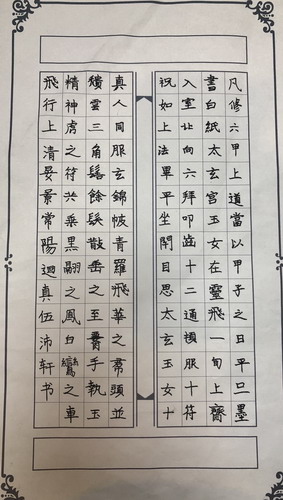 凡修六甲上道當以甲子之日平旦墨
書白紙太玄宮玉女在靈飛一旬上齋
入室北向六拜叩齒十二通頓服十符
祝如上法畢平坐閉目思太玄玉女十
真人同服玄錦帔青羅飛華之帬頭並
穨雲三角髻餘髮散垂之至手執玉
精神虎之符共乘黑翮之鳳白鸞之車
飛行上清晏景常陽迴真伍沛軒书